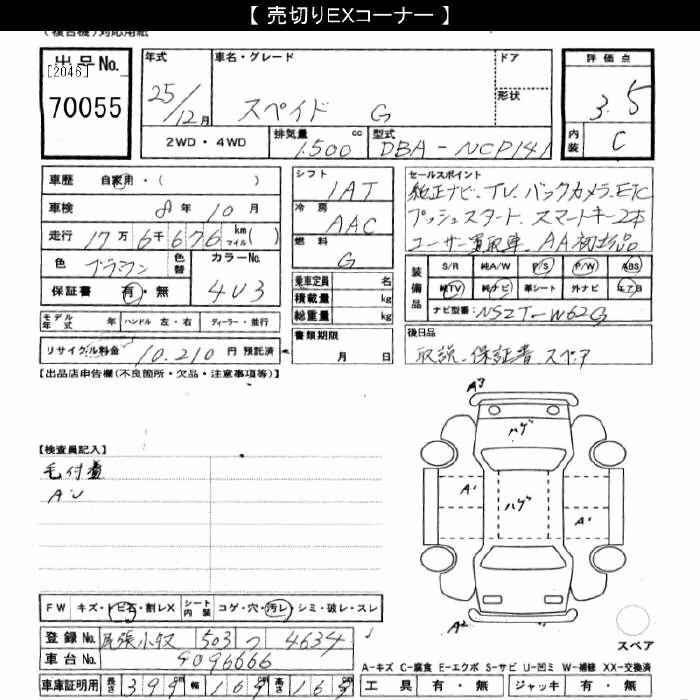 【 売切りEXコーナー 】
(複合機)対応用紙
出品No.
[2046]
70055
年式
25/12月
車名・グレード
スペイド G
ドア
形状
評価点
3.5
内装
C
2WD・4WD
排気量 cc
1500
型式
DBA-NCP141
車歴 自家用・( )
車検 8年10月
走行 17万6千676 km マイル( )
色 ブラウン
色替
カラーNo.
4U3
保証書 有・無
モデル年式 年 ハンドル 左・右 ディーラー・並行
リサイクル料金 10.210 円 預託済
シフト
1AT
冷房
AAC
燃料
G
乗車定員 名
積載量 kg
総重量 kg
書類期限
月 日
セールスポイント
純正ナビ、TV、バックカメラ、ETC
プッシュスタート、スマートキー2本
ユーザー買取車、AA初出品
装備品
S/R 純A/W P/S P/W ABS
純TV 純ナビ 革シート 外ナビ エアB
ナビ型番: NSZT-W62G
後日品
取説、保証書、スペア
【出品店申告欄(不良箇所・欠品・注意事項等)】
【検査員記入】
毛付着
AU
A3
ハゲ
ハゲ
A1
A1
A2
スペア
FW キズ・トビ石・割レX シート内装 コゲ・穴・汚レ・シミ・破レ・スレ
登録No. 尾張小牧 503 つ 4634
車台No. 9096666
車庫証明用 長さ 399 cm 幅 169 cm 高さ 169 cm
A-キズ C-腐食 E-エクボ S-サビ U-凹ミ W-補修 XX-交換済
工具 有・無 ジャッキ 有・無